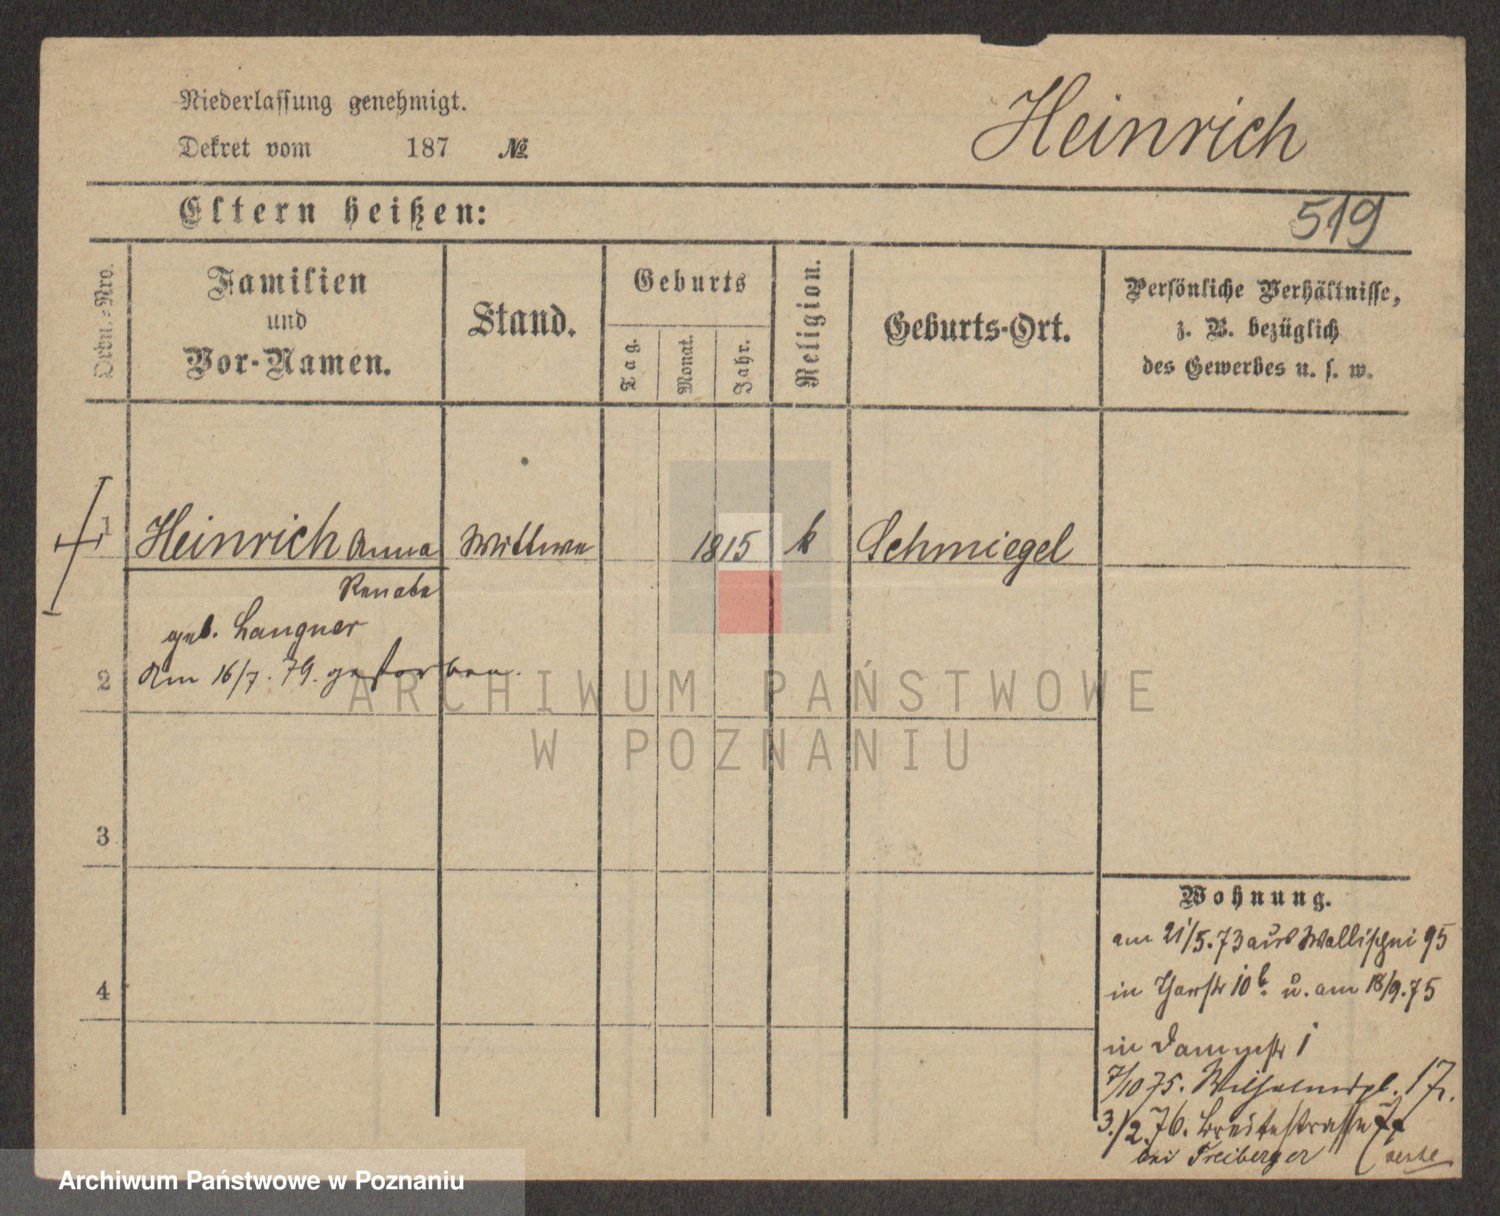 Niederlassung genehmigt.
Dekret vom 187 №
Heinrich
Eltern heißen:
519
Ordn.-Nro.
Familien
und
Vor-Namen.
Stand.
Geburts
Tag.
Monat.
Jahr.
Religion.
Geburts-Ort.
Persönliche Verhältnisse,
z. B. bezüglich
des Gewerbes u. s. w.
1 Heinrich Anna Wittwe 1815 k Schmiegel
Renate
geb. Langner
2 Am 16/7. 79. gestorben.
ARCHIWUM PAŃSTWOWE
W POZNANIU
3
4
Wohnung.
am 21/5. 73 aus Wallischei 95
in Thorstr 10 b. u. am 18/9. 75
in Dammstr 1
7/10 75. Wilhelmspl. 17.
3./2. 76. Breitestrasse
bei Freiberger
Archiwum Państwowe w Poznaniu